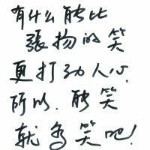 有什么能比
張扬的笑
更打动人心.
所以.能笑
就多笑吧.